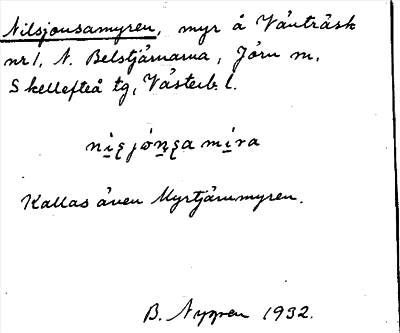 Nilsjonsamyren, myr å Vänträsk
nr 1, N. Belstjärnarna, Jörn sn,
Skellefteå tg, Västerb. l.
Kallas även Myrtjärnmyren.
B. Nygren 1932.